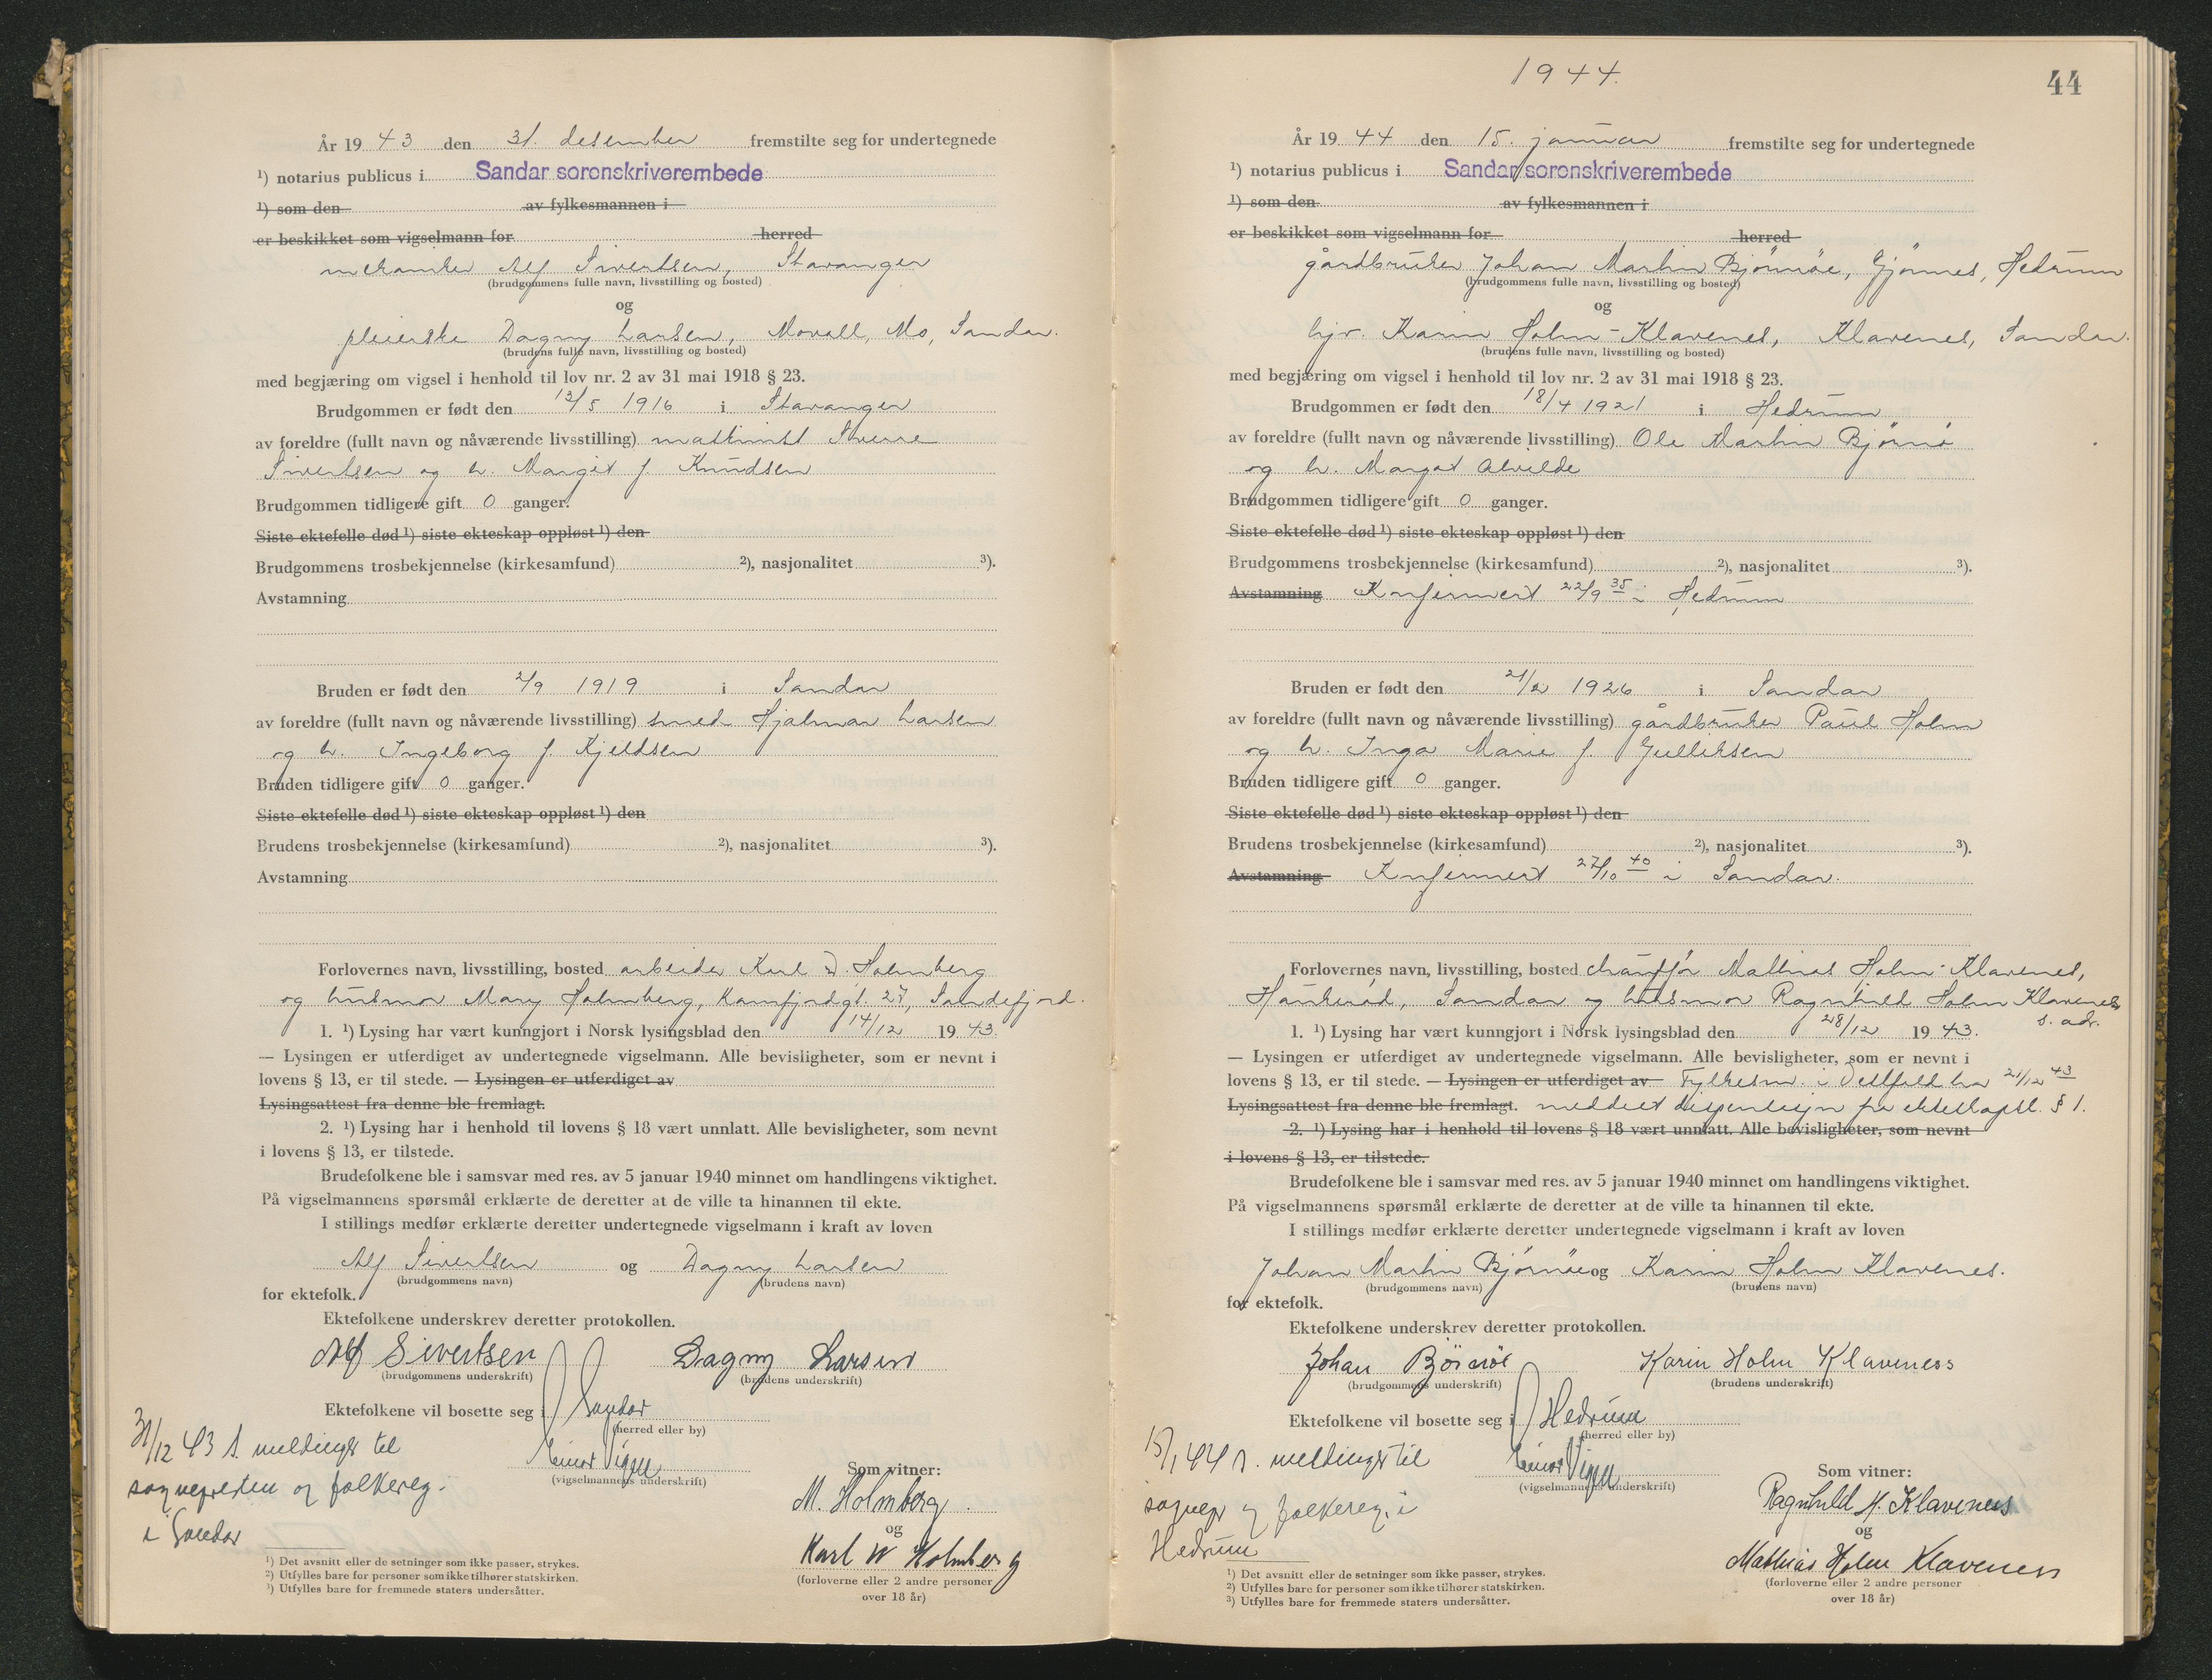 År 19 43 den 31. desember fremstilte seg for undertegnede
¹) notarius publicus i Sandar sorenskriverembede
¹) som den av fylkesmannen i
er beskikket som vigselmann for herred
mekaniker Alf Sivertsen, Stavanger
(brudgommens fulle navn, livsstilling og bosted)
og
pleierske Dagny Larsen, Movall, Mo, Sandar.
(brudens fulle navn, livsstilling og bosted)
med begjæring om vigsel i henhold til lov nr. 2 av 31 mai 1918 § 23.
Brudgommen er født den 13/5 1916 i Stavanger
av foreldre (fullt navn og nåværende livsstilling) maskinist Sverre
Sivertsen og h. Margit f. Knudsen
Brudgommen tidligere gift 0 ganger.
Siste ektefelle død ¹) siste ekteskap oppløst ¹) den
Brudgommens trosbekjennelse (kirkesamfund) ²), nasjonalitet ³).
Avstamning
Bruden er født den 2/9 1919 i Sandar
av foreldre (fullt navn og nåværende livsstilling) smed Hjalmar Larsen
og h. Ingeborg f. Kjeldsen
Bruden tidligere gift 0 ganger.
Siste ektefelle død ¹) siste ekteskap oppløst ¹) den
Brudens trosbekjennelse (kirkesamfund) ²), nasjonalitet ³).
Avstamning
Forlovernes navn, livsstilling, bosted arbeider Karl W. Holmberg
og husmor Mary Holmberg, Kamfjordgt. 27, Sandefjord.
1. ¹) Lysing har vært kunngjort i Norsk lysingsblad den 14/12 19 43.
— Lysingen er utferdiget av undertegnede vigselmann. Alle bevisligheter, som er nevnt i
lovens § 13, er til stede. — Lysingen er utferdiget av
Lysingsattest fra denne ble fremlagt.
2. ¹) Lysing har i henhold til lovens § 18 vært unnlatt. Alle bevisligheter, som nevnt
i lovens § 13, er tilstede.
Brudefolkene ble i samsvar med res. av 5 januar 1940 minnet om handlingens viktighet.
På vigselmannens spørsmål erklærte de deretter at de ville ta hinannen til ekte.
I stillings medfør erklærte deretter undertegnede vigselmann i kraft av loven
Alf Sivertsen og Dagny Larsen
(brudgommens navn) (brudens navn)
for ektefolk.
Ektefolkene underskrev deretter protokollen.
Alf Sivertsen Dagny Larsen
(brudgommens underskrift) (brudens underskrift)
Ektefolkene vil bosette seg i Sandar
(herred eller by)
31/12 43 s. meldinger til
sognepresten og folkereg.
i Sandar
Einar Vigen
(vigselmannens underskrift)
Som vitner:
M. Holmberg.
og
Karl W Holmberg
(forloverne eller 2 andre personer
over 18 år)
¹) Det avsnitt eller de setninger som ikke passer, strykes.
²) Utfylles bare for personer som ikke tilhører statskirken.
³) Utfylles bare for fremmede staters undersåtter.
1944.
44
År 19 44 den 15. januar fremstilte seg for undertegnede
¹) notarius publicus i Sandar sorenskriverembede
¹) som den av fylkesmannen i
er beskikket som vigselmann for herred
gårdbruker Johan Martin Bjørnøe, Gjønnes, Hedrum
(brudgommens fulle navn, livsstilling og bosted)
og
hjv. Karin Holm-Klavenes, Klavenes, Sandar.
(brudens fulle navn, livsstilling og bosted)
med begjæring om vigsel i henhold til lov nr. 2 av 31 mai 1918 § 23.
Brudgommen er født den 18/4 1921 i Hedrum
av foreldre (fullt navn og nåværende livsstilling) Ole Martin Bjørnø
og h. Margot Alvilde
Brudgommen tidligere gift 0 ganger.
Siste ektefelle død ¹) siste ekteskap oppløst ¹) den
Brudgommens trosbekjennelse (kirkesamfund) ²), nasjonalitet ³).
Avstamning Konfirmert 22/9 35 i Hedrum
Bruden er født den 21/2 1926 i Sandar
av foreldre (fullt navn og nåværende livsstilling) gårdbruker Paul Holm
og h. Inga Marie f. Gulliksen
Bruden tidligere gift 0 ganger.
Siste ektefelle død ¹) siste ekteskap oppløst ¹) den
Brudens trosbekjennelse (kirkesamfund) ²), nasjonalitet ³).
Avstamning Konfirmert 27/10 40 i Sandar.
Forlovernes navn, livsstilling, bosted chauffør Mathias Holm-Klavenes,
Haukerød, Sandar og husmor Ragnhild Holm Klavenes
s. adr.
1. ¹) Lysing har vært kunngjort i Norsk lysingsblad den 28/12 19 43.
— Lysingen er utferdiget av undertegnede vigselmann. Alle bevisligheter, som er nevnt i
lovens § 13, er til stede. — Lysingen er utferdiget av Fylkesm. i Vestfold har 21/12 43
Lysingsattest fra denne ble fremlagt. meddelt dispensasjon fra ekteskapsl. § 1.
2. ¹) Lysing har i henhold til lovens § 18 vært unnlatt. Alle bevisligheter, som nevnt
i lovens § 13, er tilstede.
Brudefolkene ble i samsvar med res. av 5 januar 1940 minnet om handlingens viktighet.
På vigselmannens spørsmål erklærte de deretter at de ville ta hinannen til ekte.
I stillings medfør erklærte deretter undertegnede vigselmann i kraft av loven
Johan Martin Bjørnøe og Karin Holm Klavenes.
(brudgommens navn) (brudens navn)
for ektefolk.
Ektefolkene underskrev deretter protokollen.
Johan Bjørnøe Karin Holm Klaveness
(brudgommens underskrift) (brudens underskrift)
Ektefolkene vil bosette seg i Hedrum
(herred eller by)
15/1 44 s. meldinger til
sognepr og folkereg. i
Hedrum
Einar Vigen
(vigselmannens underskrift)
Som vitner:
Ragnhild H. Klaveness
og
Mathias Holm Klaveness
(forloverne eller 2 andre personer
over 18 år)
¹) Det avsnitt eller de setninger som ikke passer, strykes.
²) Utfylles bare for personer som ikke tilhører statskirken.
³) Utfylles bare for fremmede staters undersåtter.